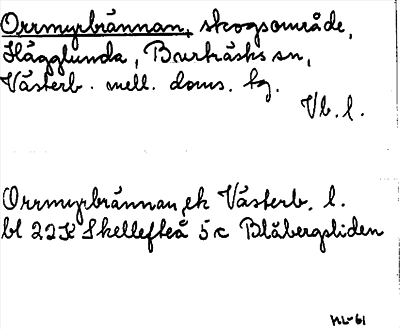 Orrmyrbrännan, skogsområde,
Hägglunda, Burträsks sn,
Västerb. mell. doms. tg.
Vb. l.
Orrmyrbrännan, ek Västerb. l.
bl 22K Skellefteå 5c Blåbergsliden
HL-61